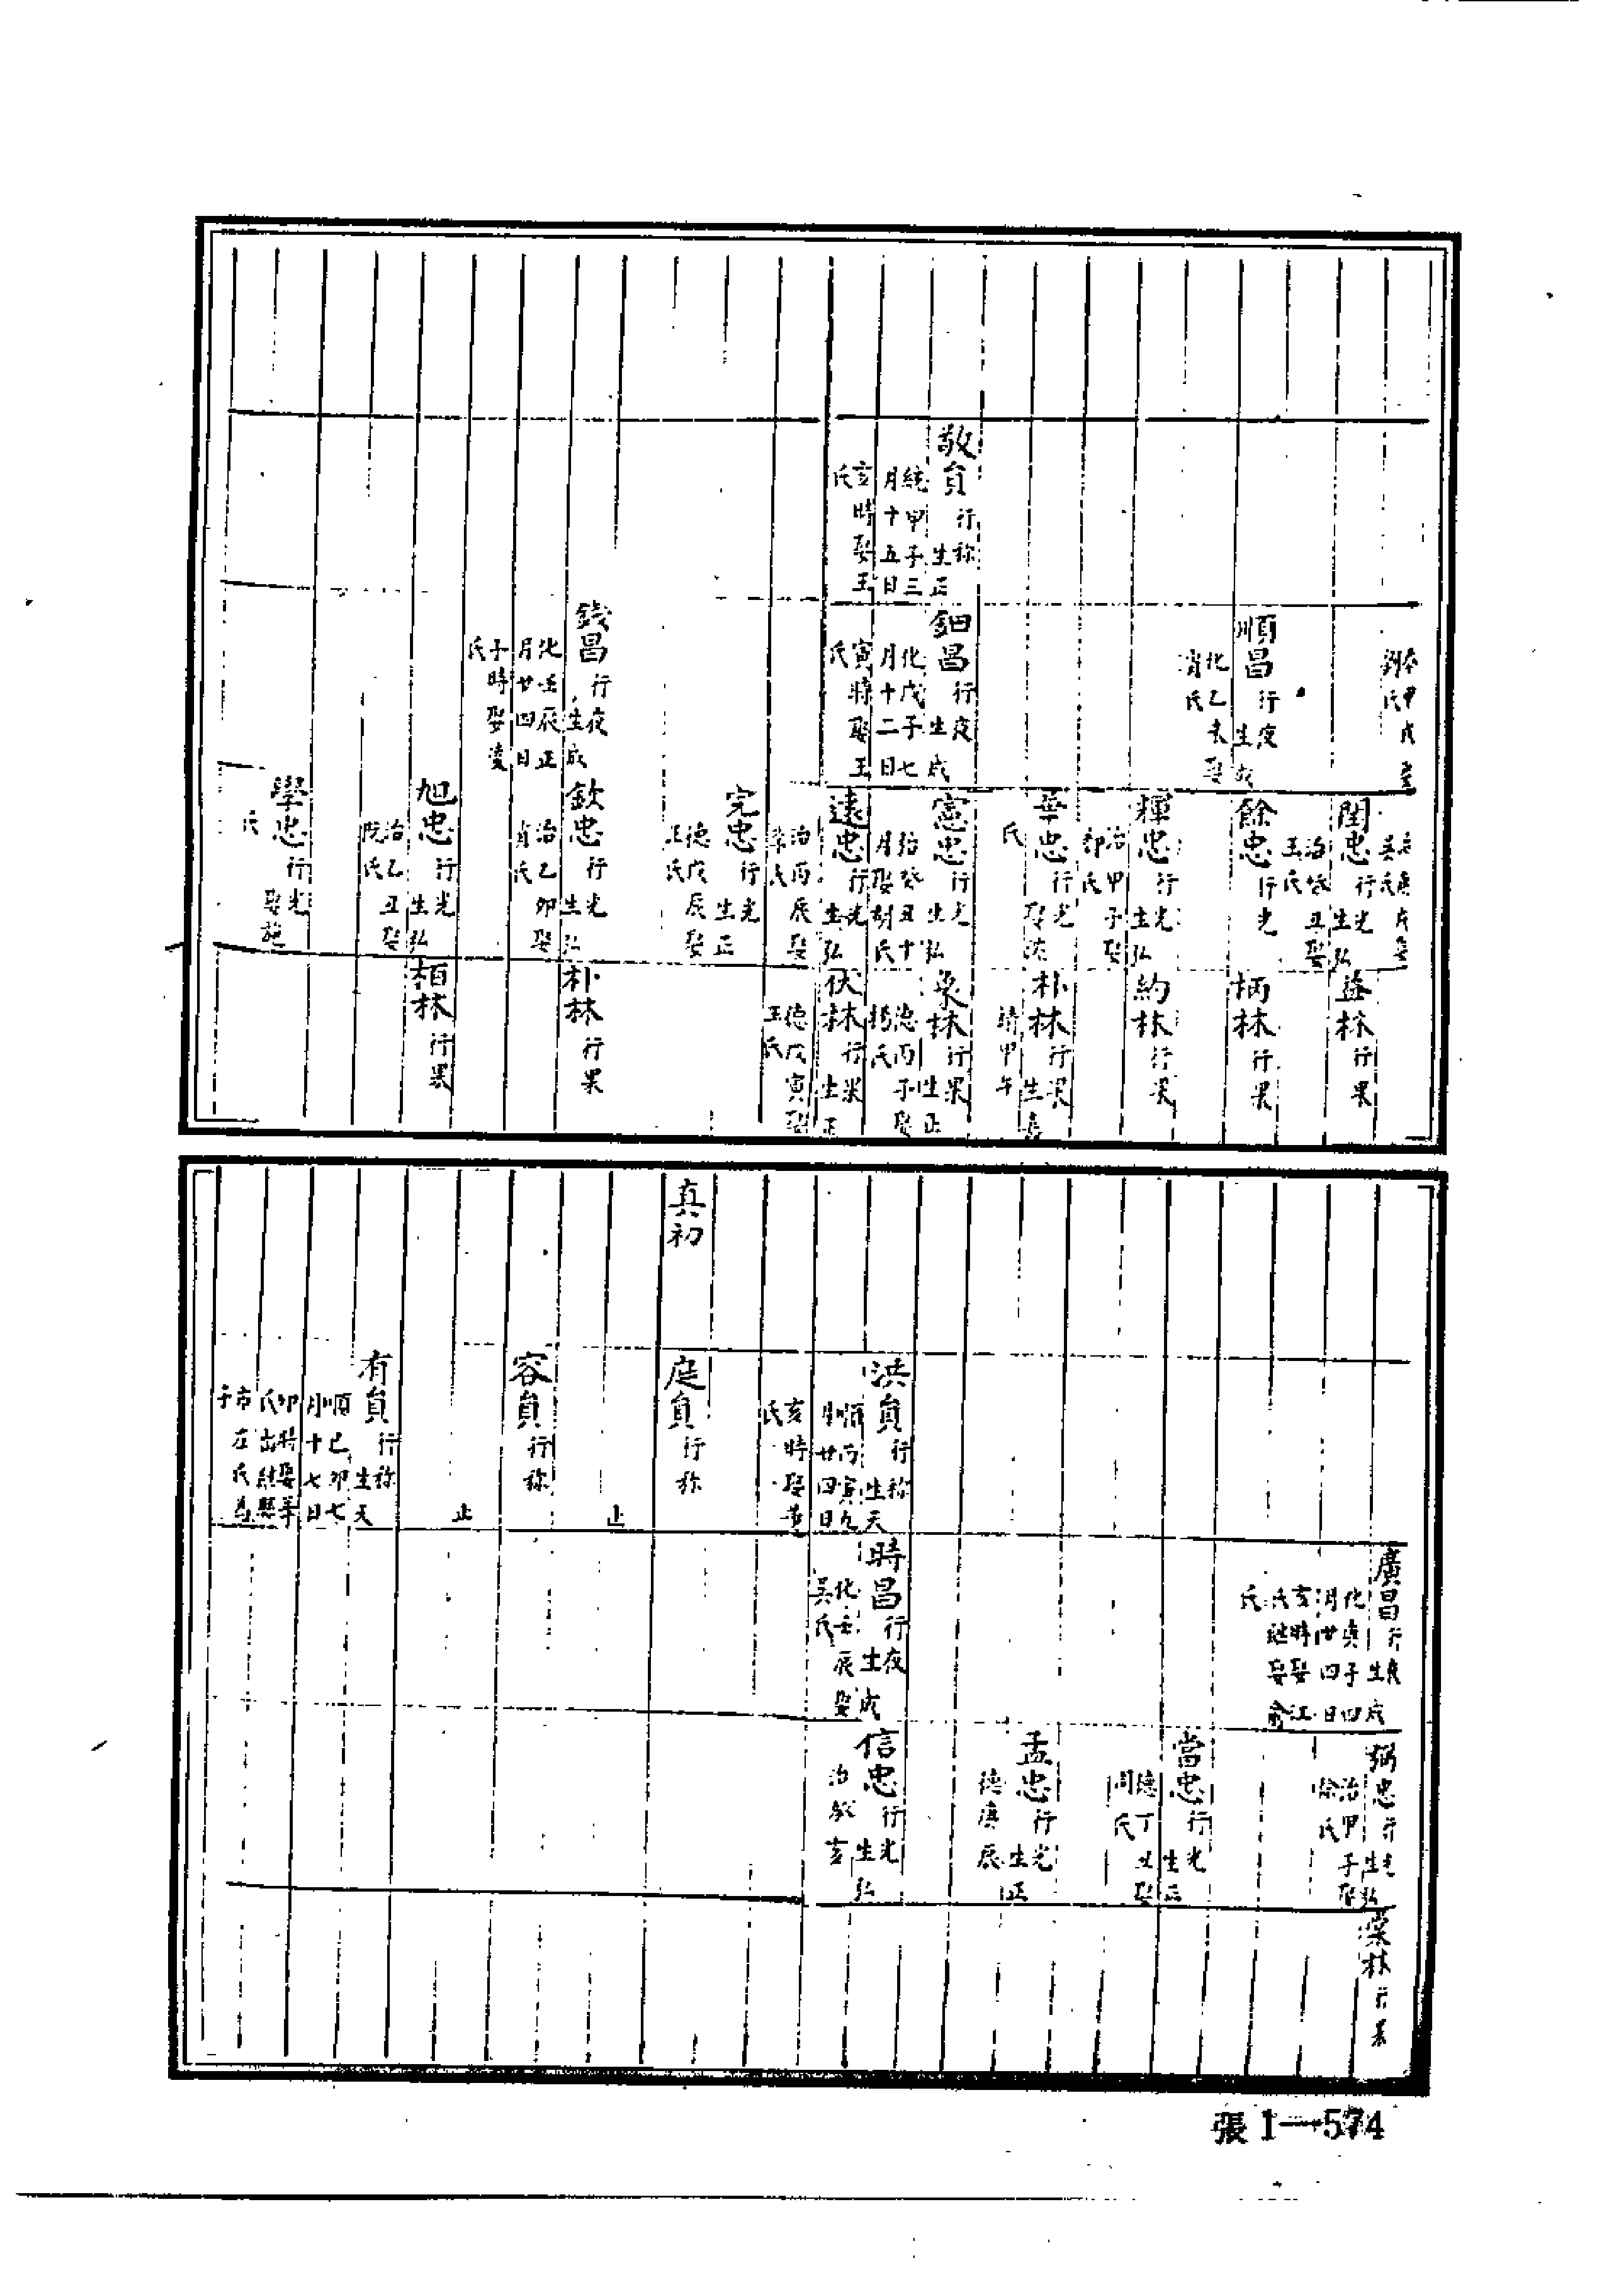 敬貟行称生正
統甲子三
月十五日
亥時娶王
氏
泰甲戌娶
劉氏
順昌行夜生成
化乙未娶
肖氏
鈿昌行夜生成
化戊子七
月十二日
寅時娶王
氏
錢昌行夜生成
化壬辰正
月廿四日
子時娶凌
氏
吳氏
閏忠行光生弘
治癸丑娶
王氏
餘忠行光
輝忠行光生弘
治甲子娶
華忠行光娶
氏
憲忠行光生弘
治癸丑十
月娶胡氏
遠忠行光生弘
治丙辰娶
李氏
完忠行光生正
德戊辰娶
汪氏
欽忠行光生弘
治乙卯娶
肖氏
旭忠行光生弘
治乙丑娶
阮氏
學忠行光娶施
氏
益林行果
柄林行果
約林行果
朴林行果生嘉
靖甲午
泉林行果生正
德丙子娶
楊氏
伏林行果生正
德戊寅娶
王氏
朴林行果
栢林行果
真初
洪貟行称生天
順丙寅九
月廿四日
亥時娶黃
氏
庭貟行称
止
容貟行称
止
有貟行称生天
順己卯七
月十七日
卯時娶羊
氏出繼縣
市左氏爲
子
廣昌行夜生成
化庚子四
月廿四日
亥時娶江
氏繼娶俞
氏
時昌行夜生成
化壬辰娶
吳氏
弼忠行光生弘
治甲子娶
徐氏
當忠行光生正
德丁丑娶
周氏
孟忠行光生正
德庚辰
信忠行光生弘
治癸亥
棠林行果
張1—574